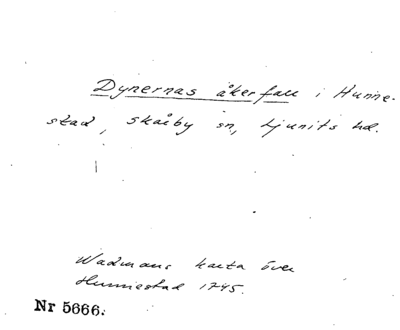 Dynernas åkerfall i Hunne-
stad, Skårby sn, Ljunits hd.
Wadmans karta över
Hunnestad 1745.
Nr 5666.